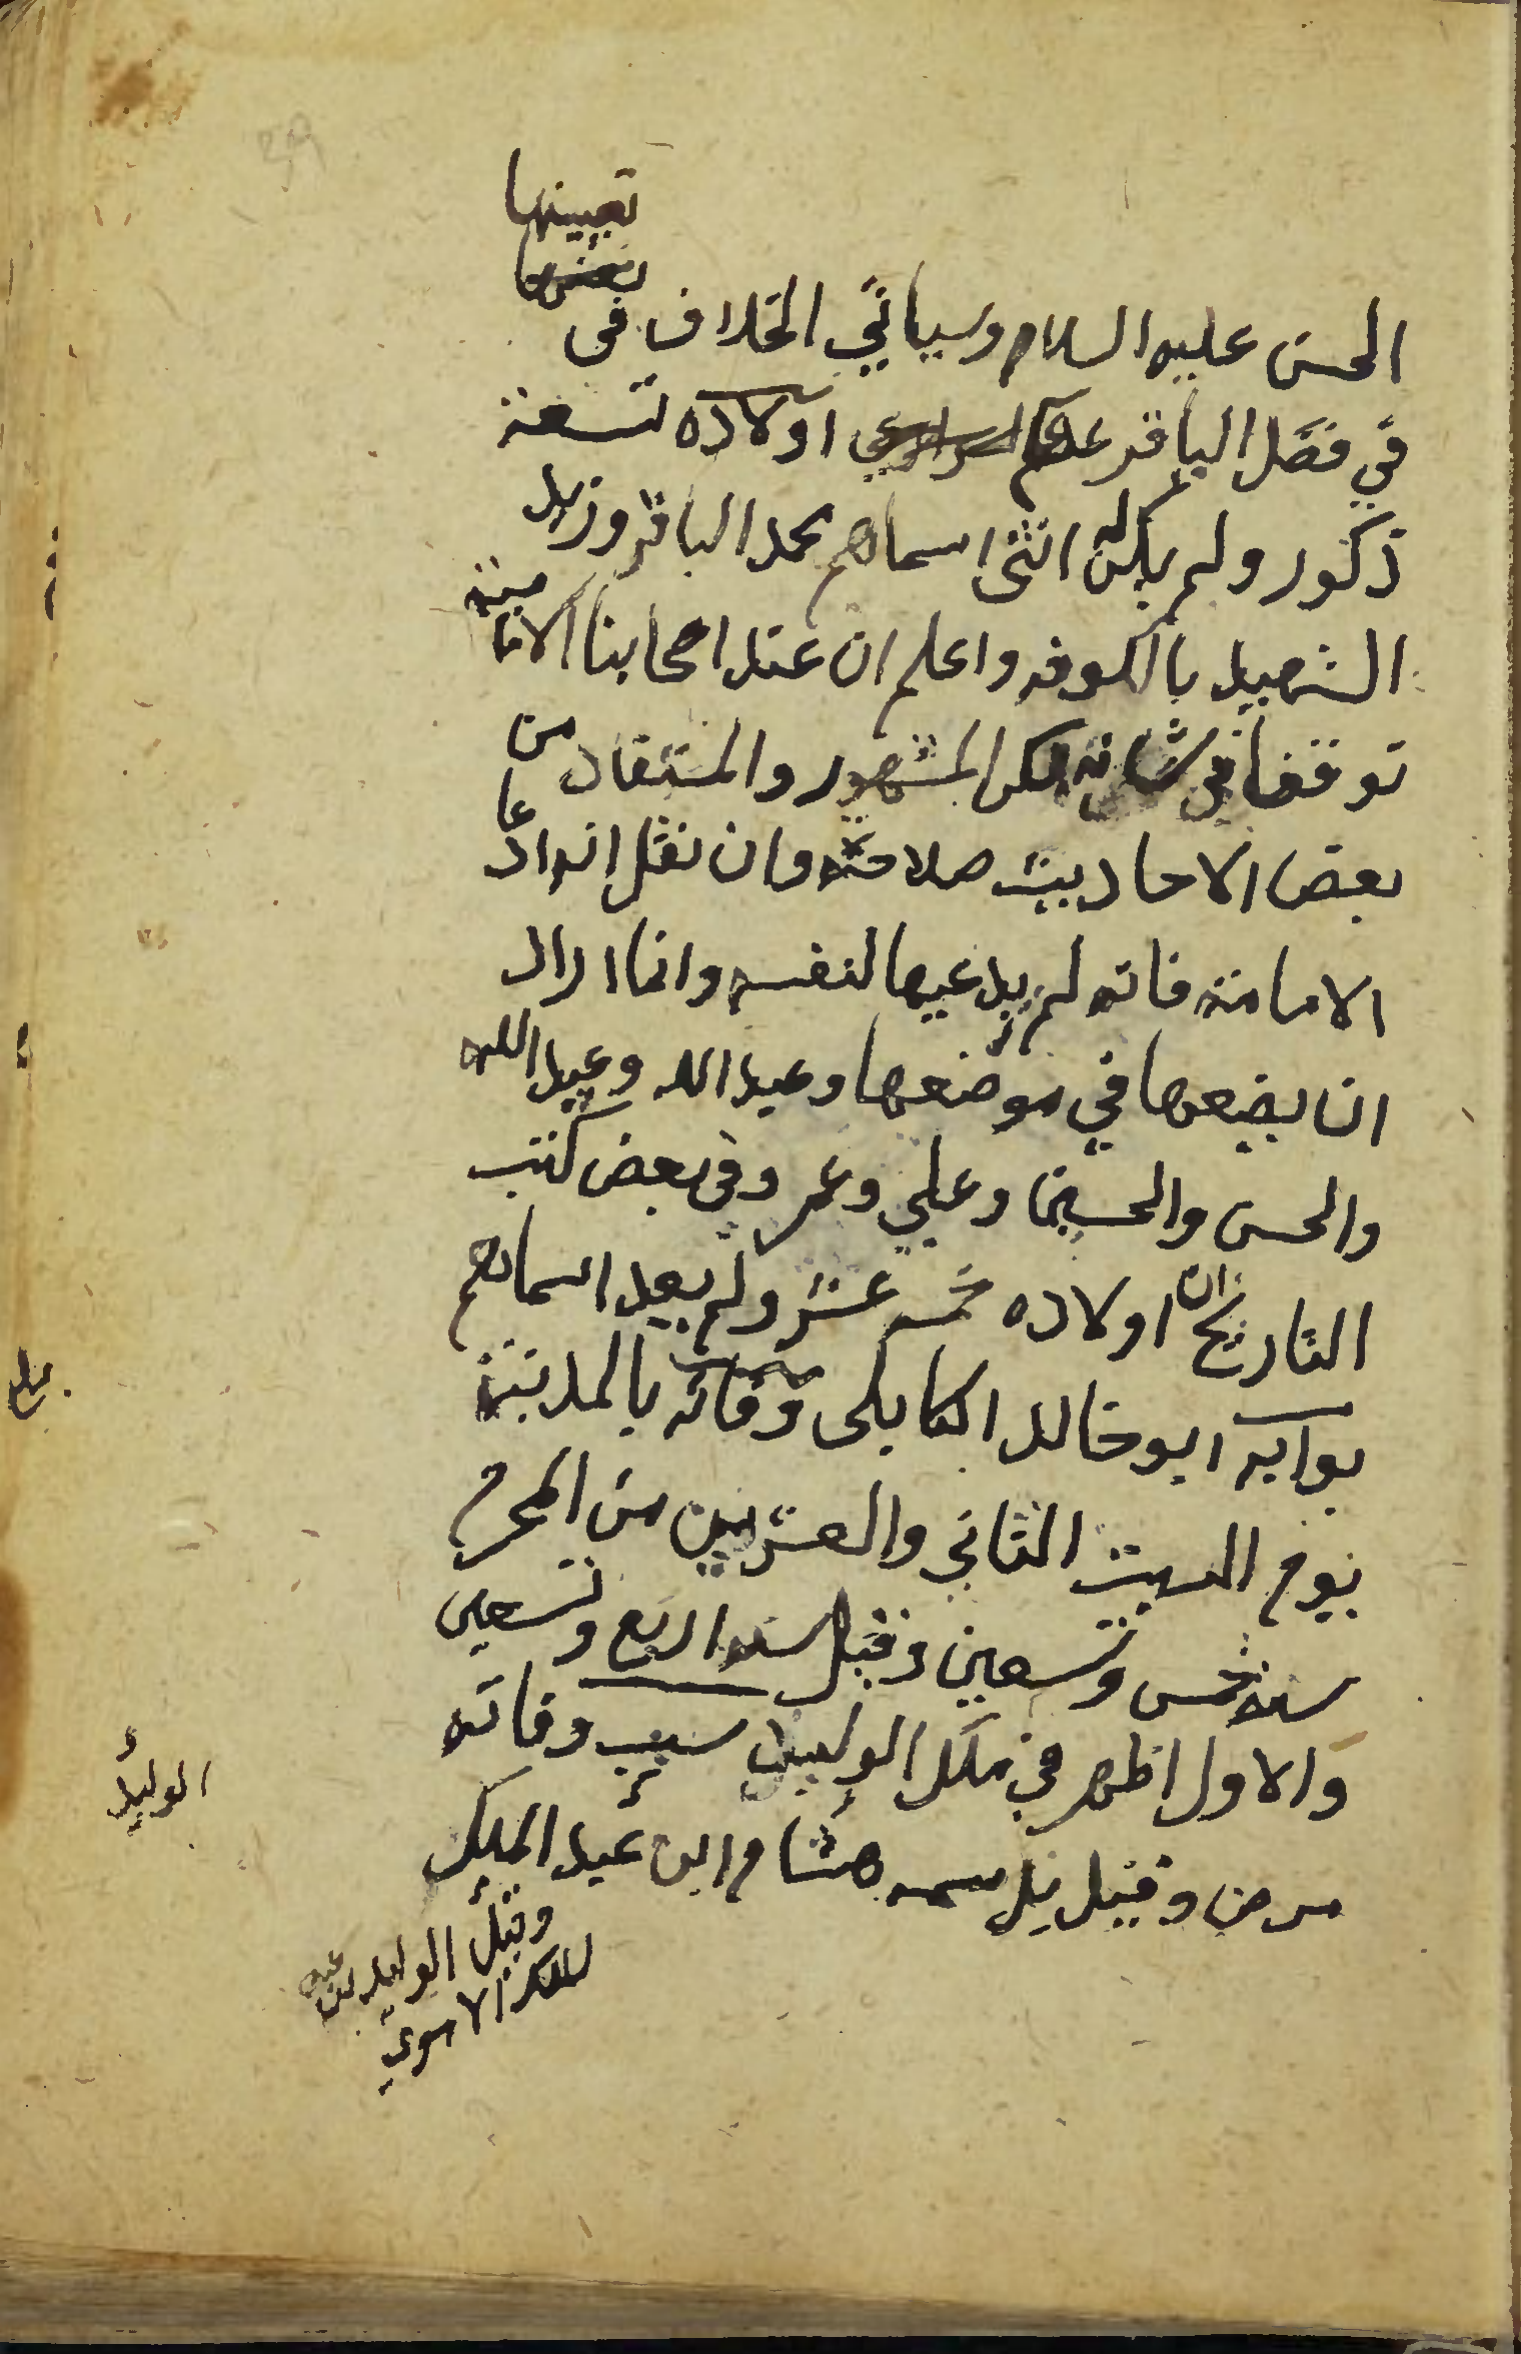 تعيينها
الحسن عليه السلام وسياتي الخلاف في
في فصل الباقر عليهم اولاده تسعة
ذكور ولم يكن له انثى اسماهم محمد الباقر وزيد
الشهيد بالكوفه واعلم ان عند اصحابنا الامامية
توقفا في شانه لكن المشهور والمستفاد من
بعض الاحاديث صلاحته وان نقل انه ادعا
الامامة فانه لم يدعيها لنفسه وانما اراد
ان يضعها في موضعها وعبد الله وعبيد الله
والحسن والحسين وعلي وعمر وفي بعض كتب
التاريخ ان اولاده خمسه عشر ولم يعد اسماهم
بوابه ابو خالد الكابلى وفاته بالمدينة
يوم السبت الثاني والعشرين من المحرم
سنة خمس وتسعين وقيل سنه اربع وتسعين
والاول اظهر في ملك الوليد سبب وفاته
مرض وقيل بل سمه هشام ابن عبد الملك
وقيل الوليد بن عبد
الملك الاموي
الوليد